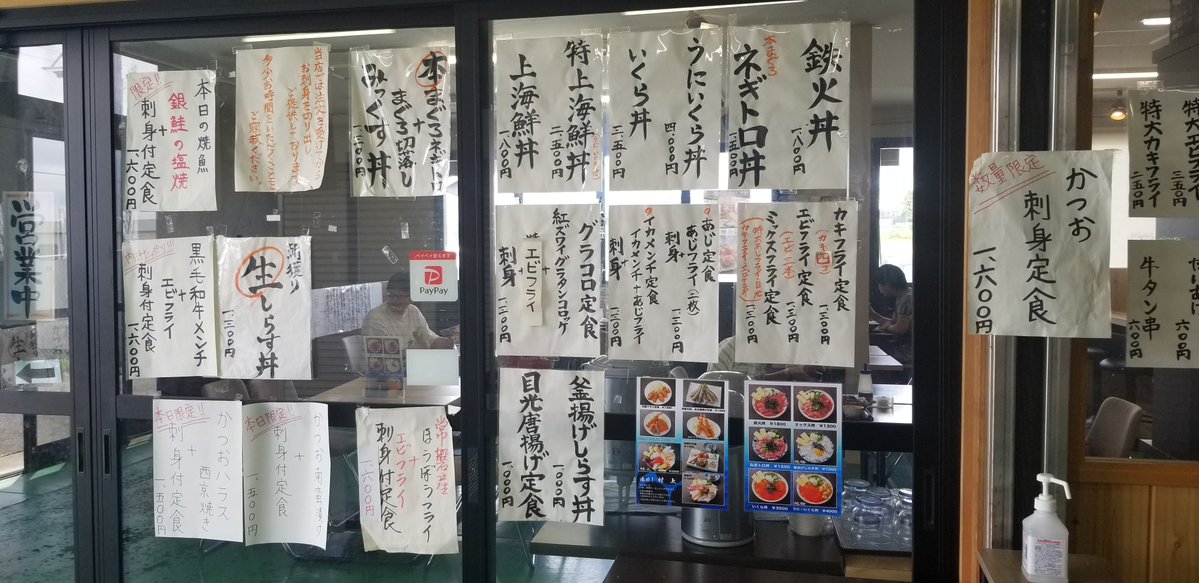 営業中
本日の焼魚
銀鮭の塩焼
+
限定!!
刺身付定食
一、六〇〇円
当店では注文を受けてから
お刺身を切り出し
ご提供しております
多少お時間をいただくことを
ご容赦ください。
本まぐろネギトロ
+
まぐろ切落し
みっくす丼
一、三〇〇円
黒毛和牛メンチ
+
エビフライ
刺身付定食
一、六〇〇円
生しらす丼
一、三〇〇円
PayPay
かつおハラス
西京焼き
+
本日限定!!
刺身付定食
一、五〇〇円
かつお南蛮漬け
+
本日限定!!
刺身付定食
一、五〇〇円
常磐産
ほうぼうフライ
+
エビフライ
刺身付定食
一、六〇〇円
特上海鮮丼
二、五〇〇円
上海鮮丼
一、八〇〇円
うにいくら丼
四、〇〇〇円
いくら丼
三、五〇〇円
鉄火丼
一、八〇〇円
本まぐろ
ネギトロ丼
一、五〇〇円
グラコロ定食
紅ズワイグラタンコロッケ
+
エビフライ
+
刺身
一、三〇〇円
あじ定食
あじフライ(二枚)
+
刺身
一、三〇〇円
イカメンチ定食
イカメンチ+あじフライ
+
刺身
一、三〇〇円
カキフライ定食
(カキ四コ)
一、三〇〇円
エビフライ定食
(エビ二本)
一、三〇〇円
ミックスフライ定食
一、三〇〇円
釜揚げしらす丼
一、〇〇〇円
目光唐揚げ定食
一、〇〇〇円
鉄火丼 ¥1800
ミックス丼 ¥1300
¥1500
¥1000
いくら丼 ¥3500
うに・いくら丼 ¥4000
村上
数量限定
かつお
刺身定食
一、六〇〇円
特大カキフライ
二五〇円
牛タン串
六〇〇円